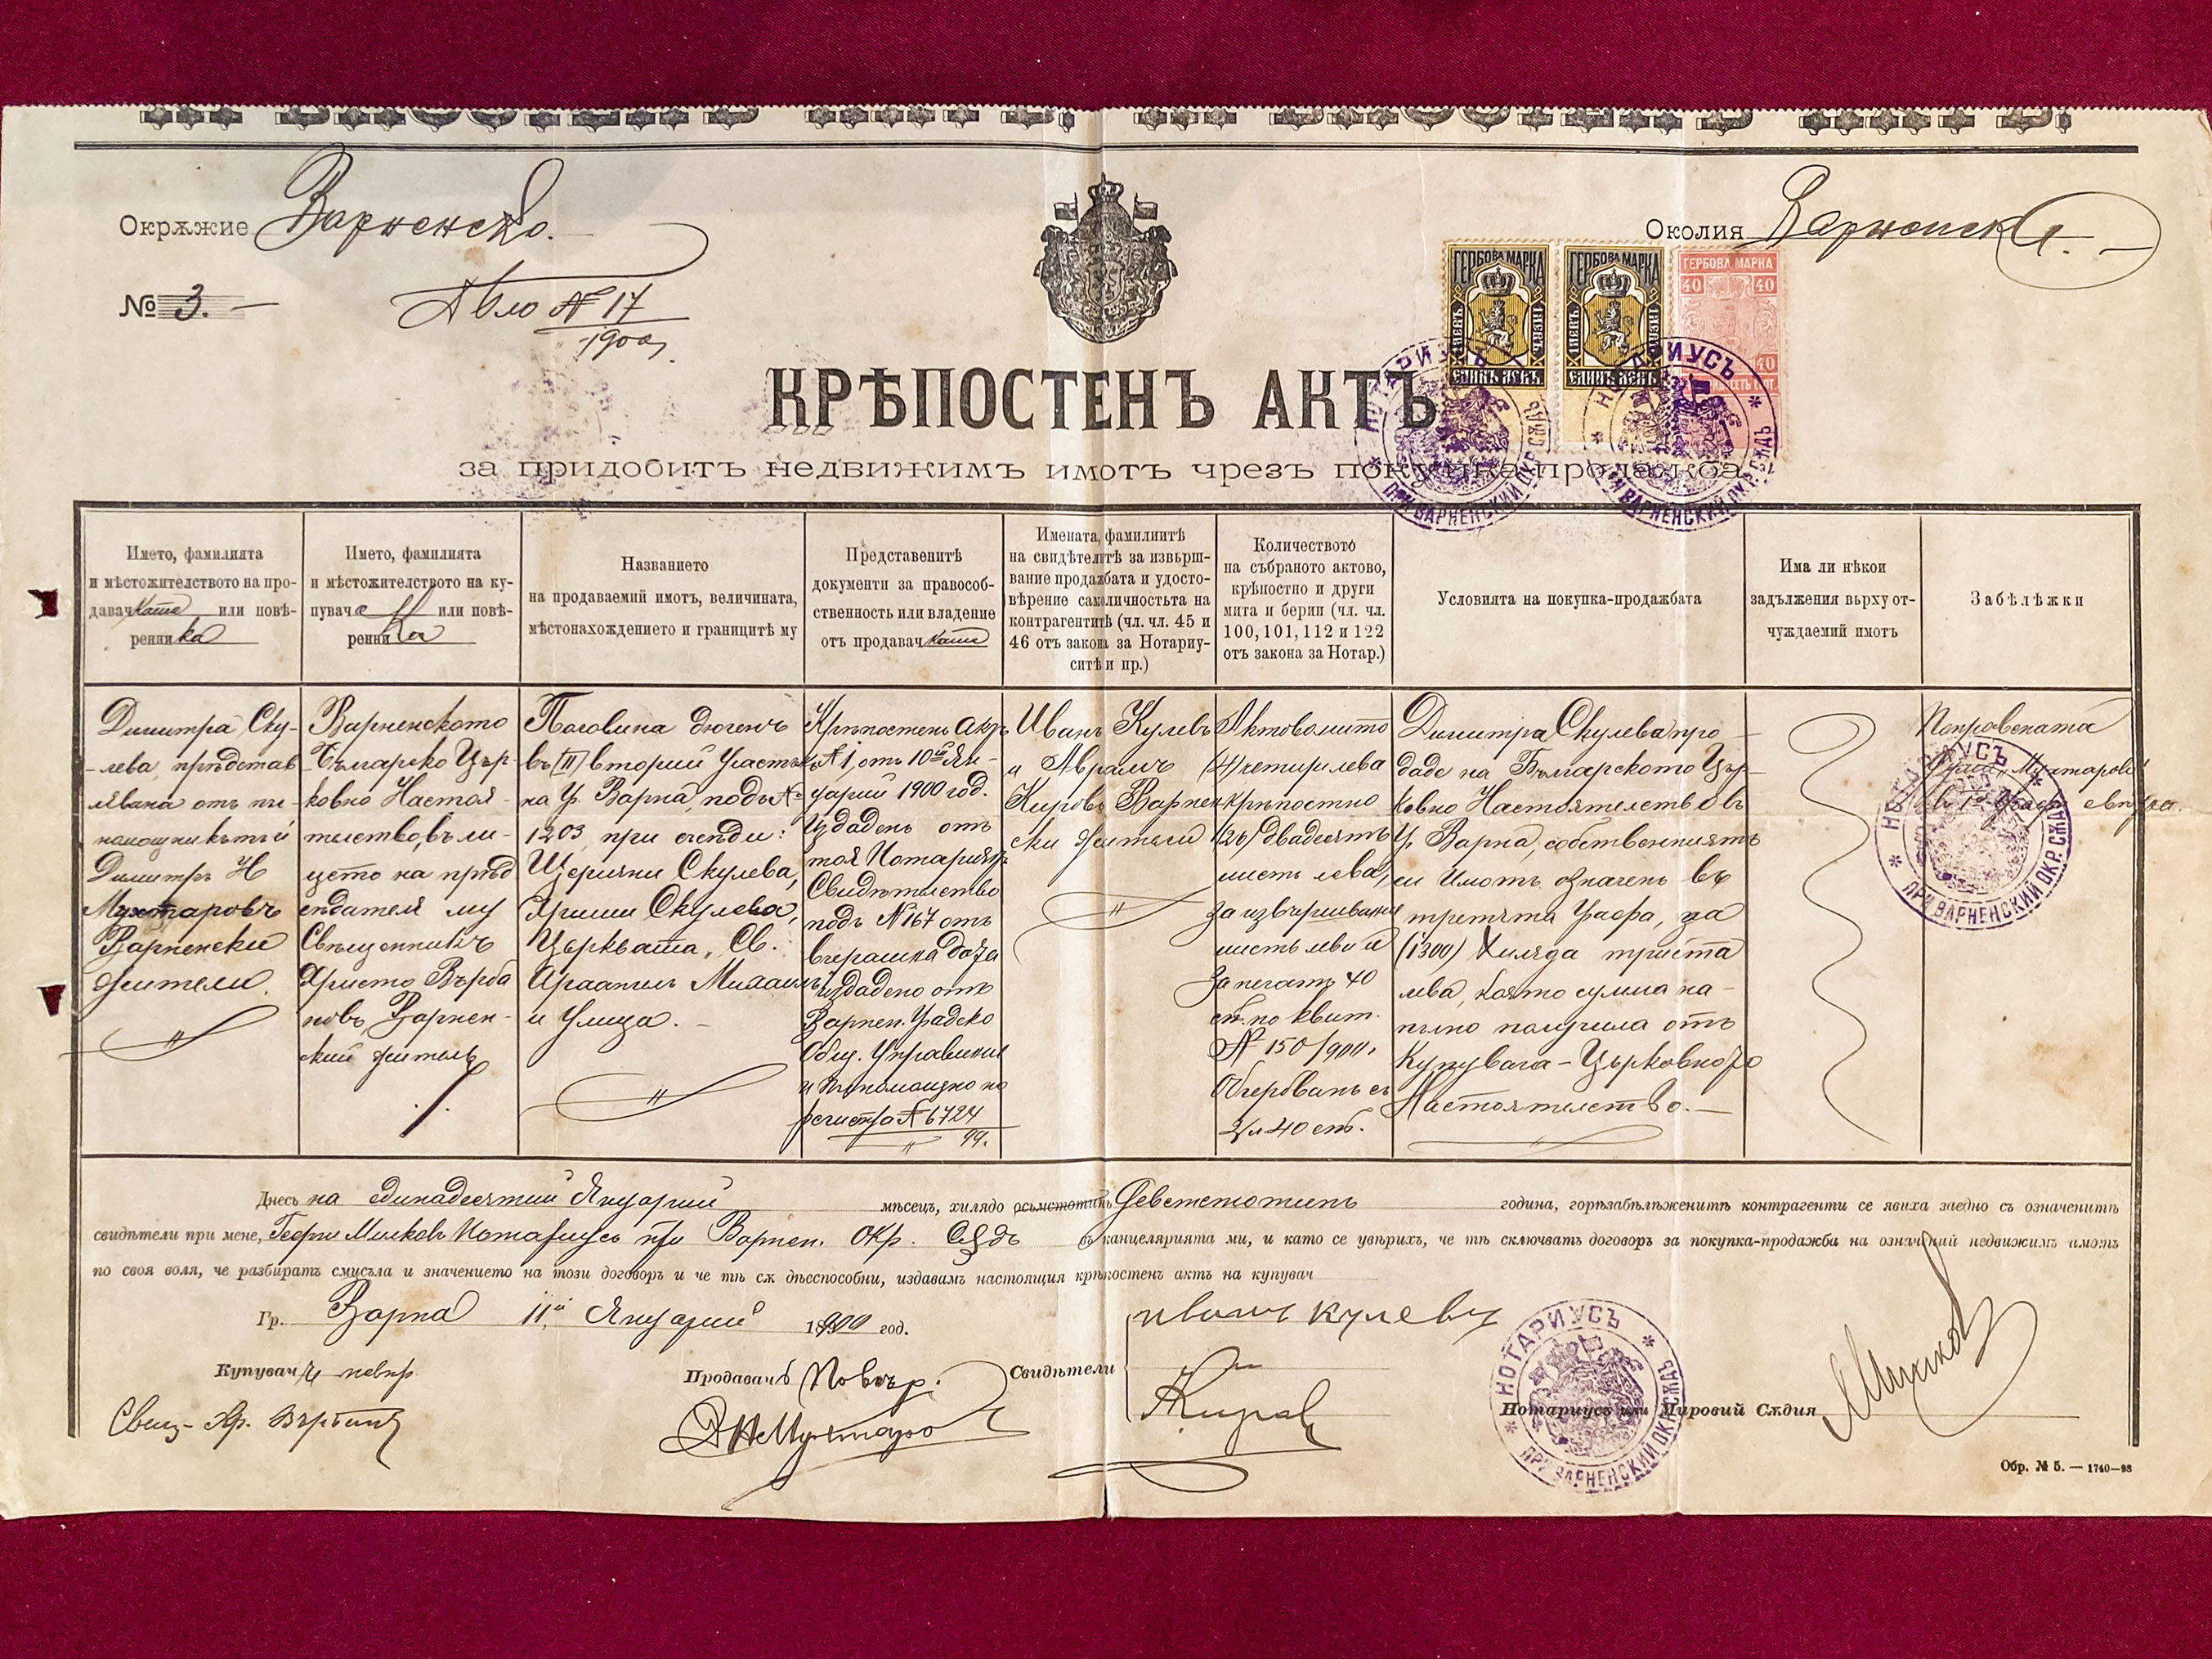 Окрѫжие Варненско.
Околия Варненска.
№ 3. —
Дѣло № 17
1900
ГЕРБОВА МАРКА
ЕДИНЪ ЛЕВЪ
ГЕРБОВА МАРКА
ЕДИНЪ ЛЕВЪ
ГЕРБОВА МАРКА
40 40
40
КРѢПОСТЕНЪ АКТЪ
за придобитъ недвижимъ имотъ чрезъ покупка-продажба
НОТАРИУСЪ * ПРИ ВАРНЕНСКИЙ ОКР. СѪДЪ *
НОТАРИУСЪ * ПРИ ВАРНЕНСКИЙ ОКР. СѪДЪ *
Името, фамилията
и мѣстожителството на про-
давачката или повѣ-
ренника
Името, фамилията
и мѣстожителството на ку-
пувача или повѣ-
ренника
Названието
на продаваемий имотъ, величината,
мѣстонахождението и границитѣ му
Представенитѣ
документи за правоспособ-
ственность или владение
отъ продавачката
Имената, фамилиитѣ
на свидѣтелитѣ за извърш-
вание продажбата и удосто-
вѣрение самоличностьта на
контрагентитѣ (чл. чл. 45 и
46 отъ закона за Нотариу-
ситѣ и пр.)
Количеството
на събраното актово,
крѣпостно и други
мита и берии (чл. чл.
100, 101, 112 и 122
отъ закона за Нотар.)
Условията на покупка-продажбата
Има ли нѣкои
задължения върху от-
чуждаемий имотъ
Забѣлѣжки
Димитра Ску-
лева, прѣдстав
лявана отъ пъл
номощникътъ ѝ
Димитръ Н
Мухтаровъ
Варненски
жители.
Варненското
Българско Цър-
ковно Настоя-
телство, въ ли-
цето на прѣд
седателя му
Свещенникъ
Христо Върба
новъ, Варнен-
ский жителъ
Половина дюгенъ
въ (II) вторий участъкъ
на гр. Варна, подъ №
1203, при съседи:
Щерияни Скулева,
Яриши Скулева,
Църквата „Св.
Архангелъ Михаилъ
и Улица. —
Крѣпостенъ актъ
№ 1, отъ 10й Яну-
уарий 1900 год.
Издаденъ отъ
тоя Нотариятъ
Свидѣтелство
подъ № 167 отъ
вчерашна дата
издадено отъ
Варнен. Градско
Общ. Управление
и Пълномощно по
регистра № 6724
99.
Иванъ Кулевъ
и Аврамъ
Кировъ Варнен
ски жители
Актово мито
(4) четири лева
крѣпостно
(26) двадесять
шесть лева,
за извършвание
шесть лева и
за печатъ 40
ст. по квит.
№ 150/900.
Обгербванъ съ
2 л 40 ст.
Димитра Скулева про
даде на Българското Цър-
ковно Настоятелство въ
гр. Варна, собственниятъ
си Имотъ означенъ въ
третята графа, за
(1300) Хиляда триста
лева, която сумма на-
пълно получила отъ
Купувача – Църковното
Настоятелство. —
Поправената
дума „Мухтаровъ"
въ 1а графа
НОТАРИУСЪ * ПРИ ВАРНЕНСКИЙ ОКР. СѪДЪ *
Днесь на единадесятий Януарий мѣсецъ, хилядо осьмстотинъ Деветстотинъ година, горѣзабѣлѣженитѣ контрагенти се явиха заедно съ означенитѣ
свидѣтели при мене, Георги Милковъ Нотариусъ при Варнен. Окр. Сѫдъ въ канцелярията ми, и като се увѣрихъ, че тѣ сключватъ договоръ за покупка-продажба на означений недвижимъ имотъ
по своя воля, че разбиратъ смисъла и значението на този договоръ и че тѣ сѫ дѣеспособни, издавамъ настоящия крѣпостенъ актъ на купувач
Гр. Варна 11й Януарий 1900 год.
Купувачъ повѣр.
Свещ. Хр. Върбанъ
Продавачъ Повѣр.
Д Н Мухтаро
Свидѣтели
иванъ кулевъ
А Киров
НОТАРИУСЪ * ПРИ ВАРНЕНСКИЙ ОКР. СѪДЪ *
Нотариусъ или Мировий Сѫдия Милков
Обр. № 5. — 1740—98